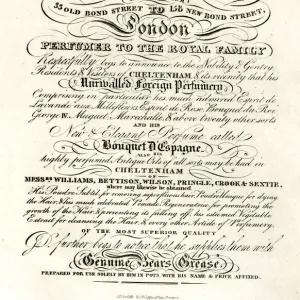 35 OLD BOND STREET TO 158 NEW BOND STREET,
London
PERFUMER TO THE ROYAL FAMILY
Respectfully begs to announce to the Nobility & Gentry
Residents & Visitors of CHELTENHAM & its vicinity that his
Unrivalled Foreign Perfumery
Comprising in particular his much admired Esprit de
Lavande aux Millefleurs, Esprit de Rose, Bouquet du Roi
George IV. Muguet, Marechalle, & above twenty other sorts
AND HIS
New & Elegant Perfume called
Bouquet D'Espagne
ALSO HIS
highly perfumed Antique Oils of all sorts may be had in
CHELTENHAM
OF
MESSRS WILLIAMS, BETTISON, WILSON, PRINGLE, CROOK & SEXTIE,
where may likewise be obtained
His Poudre Subtil, for removing superfluous hair,
the Hair. His much celebrated Pomade Regeneratrice for promoting the
growth of the Hair & preventing its falling off, his esteemed Vegetable
Extract for cleansing the Hair, & every other Article of Perfumery,
OF THE MOST SUPERIOR QUALITY
D. further begs to notice that he supplies them with
Genuine Bears Grease
PREPARED FOR USE SOLELY BY HIM IN POTS, WITH HIS NAME & PRICE AFFIXED.